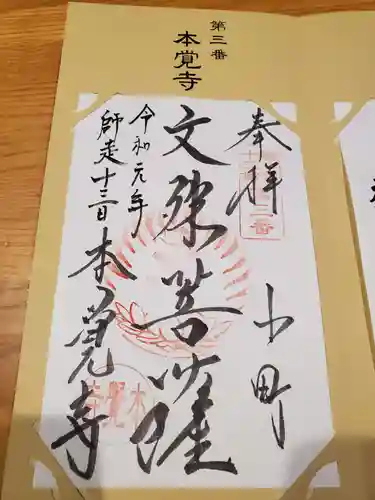 第三番
本覚寺
奉拝
小町
文殊菩薩
令和元年
師走十三日
本覚寺